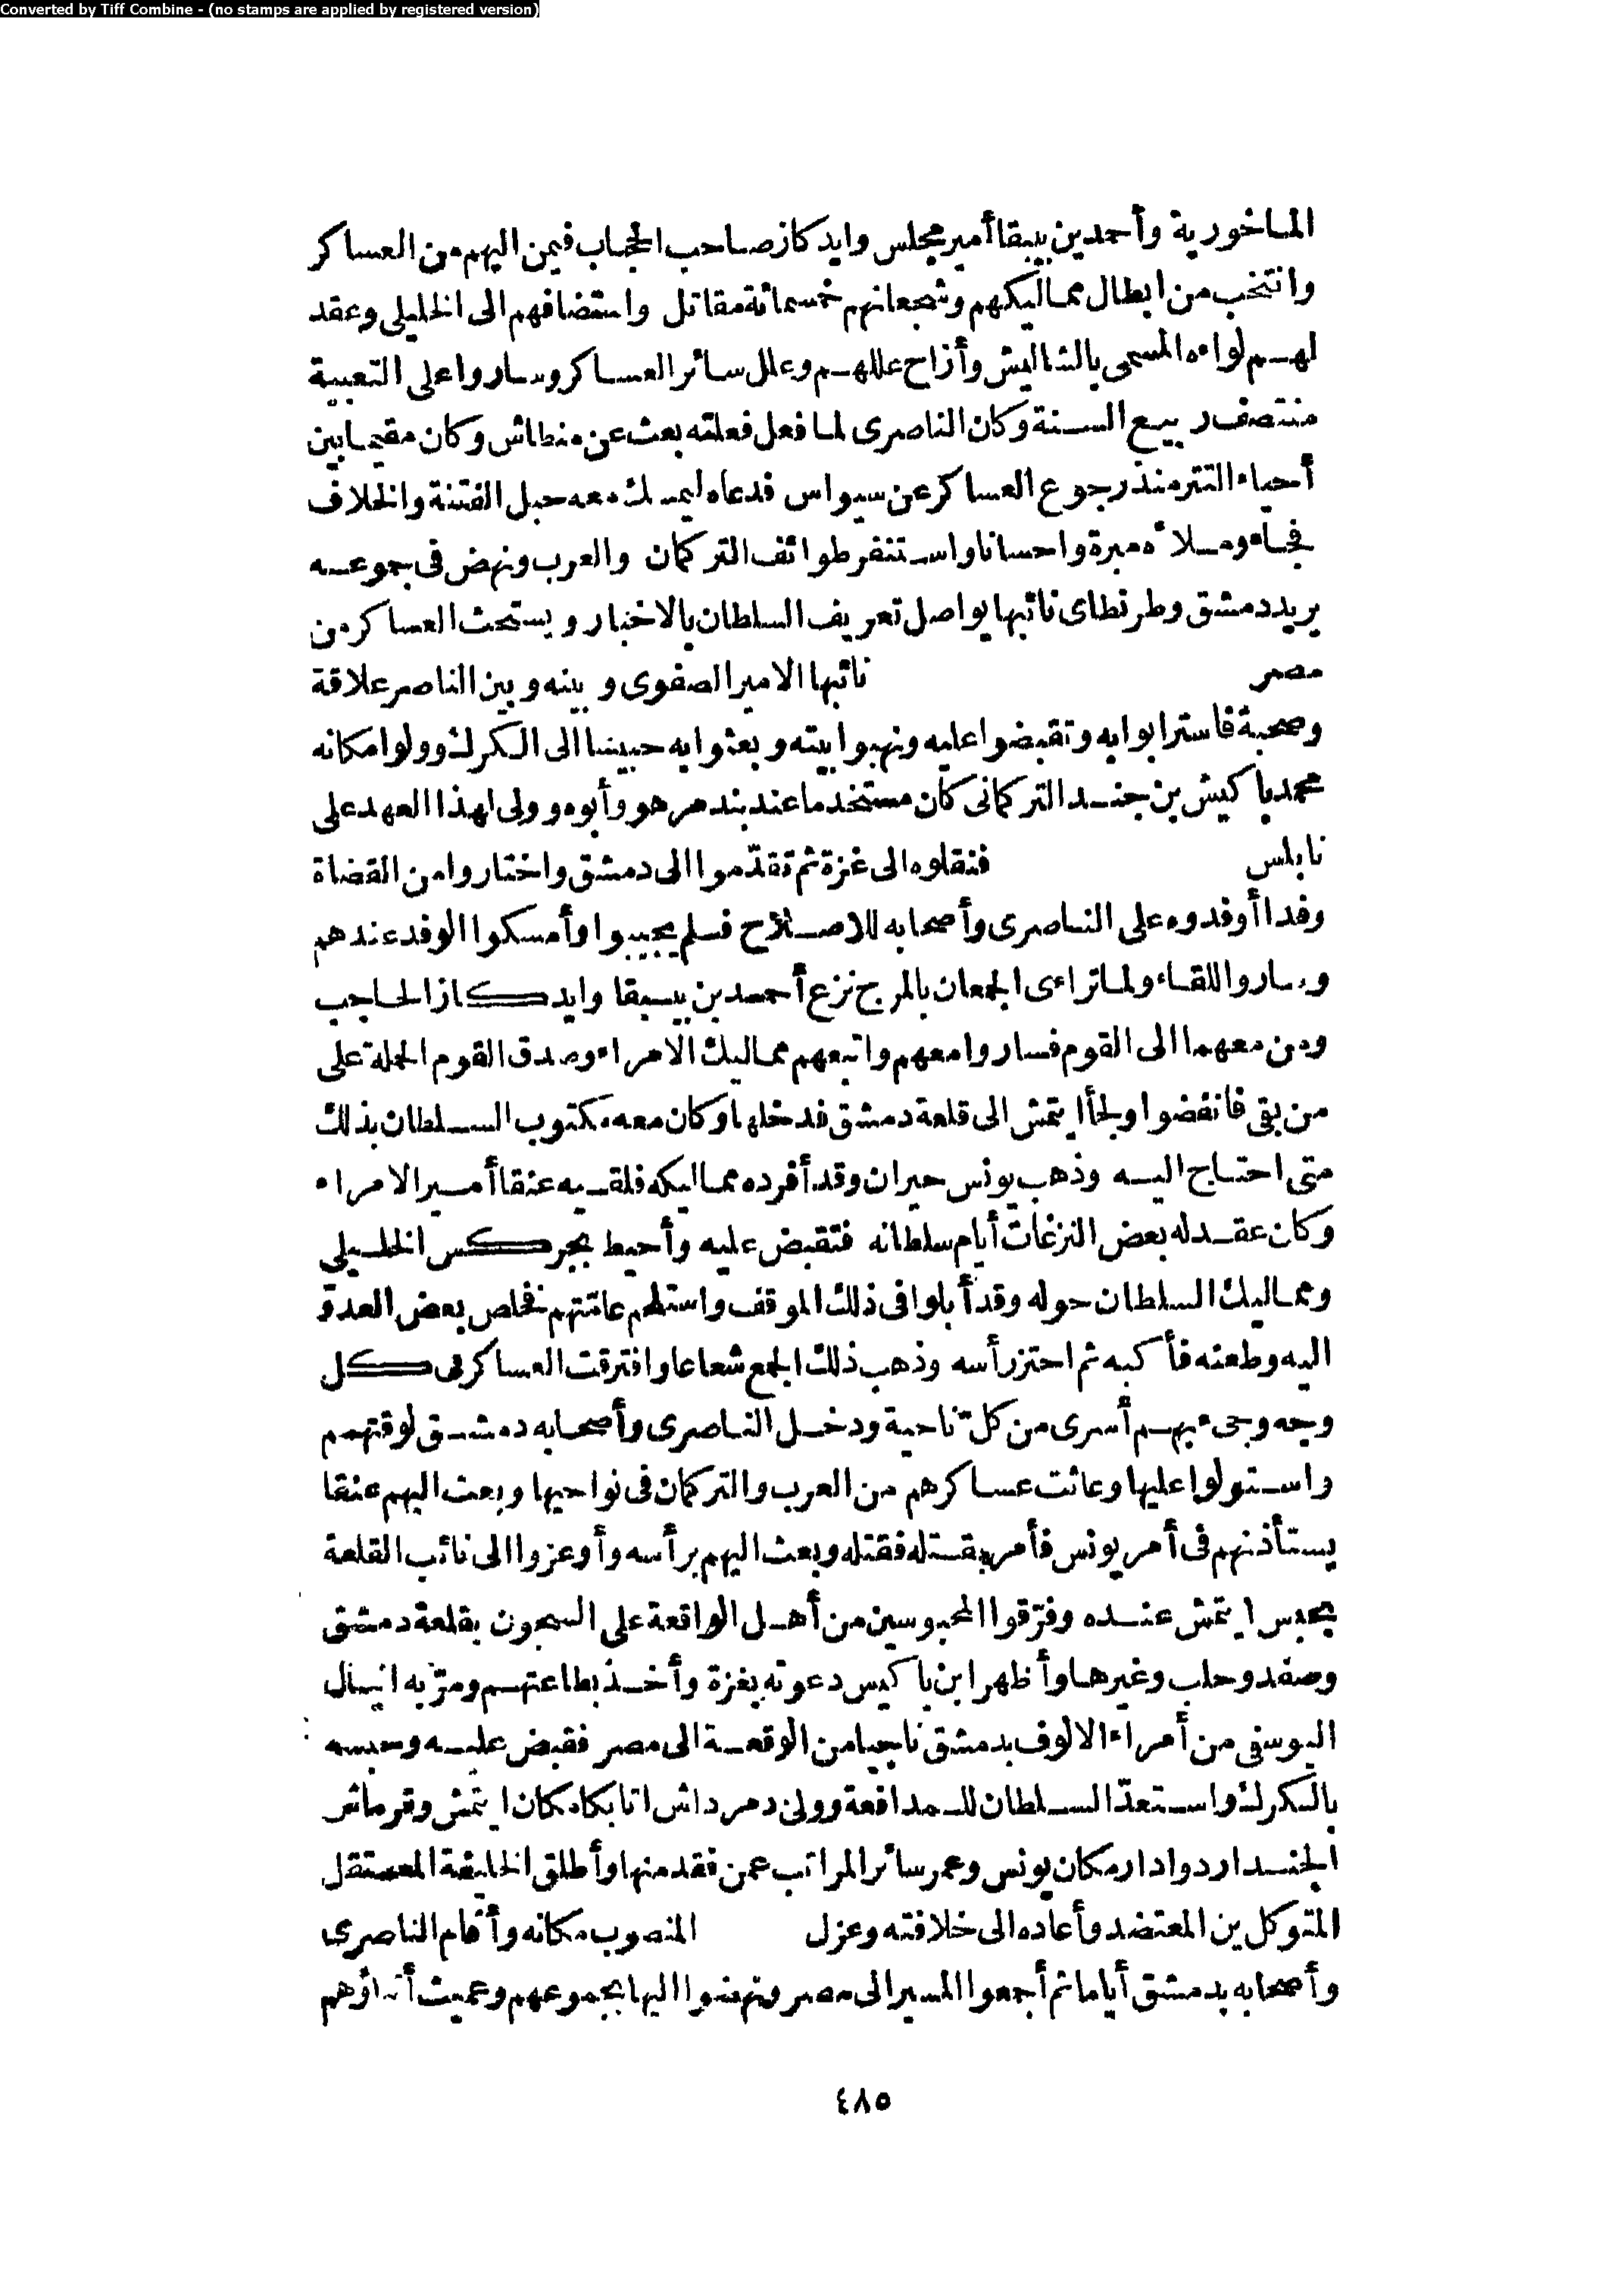 Converted by Tiff Combine - (no stamps are applied by registered version)
الماخورية وأحمد بن يبقا أمير مجلس وايدكاز صاحب الحجاب فيمن اليهم من العساكر
وانتخب من ابطال مماليكهم وشجعانهم خمسمائة مقاتل واستضافهم الى الخليلى وعقد
لهم لواءه المسمى بالشاليش وأزاح عللهم وعلل سائر العساكر وساروا على التعبية
منتصف ربيع السنة وكان الناصرى لما فعل فعلته بعث عن منطاش وكان مقيما بين
أحياء التتر منذ رجوع العساكر عن سيواس فدعاه ليمسك معه حبل الفتنة والخلاف
فجاء وملأه مبرة واحسانا واستنفر طوائف التركمان والعرب ونهض فى جموعه
يريد دمشق وطرنطاى نائبها يواصل تعريف السلطان بالاخبار ويستحث العساكر من
مصر نائبها الامير الصفوى وبينه وبين الناصر علاقة
وصحبة فاسترابوا به وتقبضوا عليه ونهبوا بيته وبعثوا به حبيسا الى الكرك وولوا مكانه
محمد باكيش بن جند التركمانى كان مستخدما عند بندمر هو وأبوه وولى لهذا العهد على
نابلس فنقلوه الى غزة ثم تقدّموا الى دمشق واختاروا من القضاة
وفدا أوفدوه على الناصرى وأصحابه للاصلاح فلم يجيبوا وأمسكوا الوفد عندهم
وساروا للقاء ولما تراءى الجمعان بالمرج نزع أحمد بن يبقا وايدكاز الحاجب
ومن معهما الى القوم فساروا معهم واتبعهم مماليك الامراء وصدق القوم الحملة على
من بقى فانفضوا ولجأ ايتمش الى قلعة دمشق فدخلها وكان معه مكتوب السلطان بذلك
متى احتاج اليه وذهب يونس حيران وقد أفرده مماليكه فلقيه عنقا أمير الامراء
وكان عقد له بعض النزغات أيام سلطانه فتقبض عليه وأحيط بجركس الخليلى
ومماليك السلطان حوله وقد أبلوا فى ذلك الموقف واستلحم عامّتهم فخلص بعض العدوّ
اليه وطعنه فأكبه ثم احتز رأسه وذهب ذلك الجمع شعاعا وافترقت العساكر فى كل
وجه وجىء بهم أسرى من كل ناحية ودخل الناصرى وأصحابه دمشق لوقتهم
واستولوا عليها وعاثت عساكرهم من العرب والتركمان فى نواحيها وبعث اليهم عنقا
يستأذنهم فى أمر يونس فأمر بقتله فقتله وبعث اليهم برأسه وأوعزوا الى نائب القلعة
بحبس ايتمش عنده وفرّقوا المحبوسين من أهل الواقعة على السجون بقلعة دمشق
وصفد وحلب وغيرها وأظهر ابن باكيس دعوته بغزة وأخذ بطاعتهم ومرّ به اينال
اليوسفى من أمراء الالوف بدمشق ناجيا من الوقعة الى مصر فقبض عليه وحبسه
بالكرك واستعدّ السلطان للمدافعة وولى دمرداش اتابكا مكان ايتمش وقرماش
الجندار دوادار مكان يونس وعمر سائر المراتب عمن فقد منها وأطلق الخليفة المعتقل
المتوكل بن المعتضد وأعاده الى خلافته وعزل المنصوب مكانه وأقام الناصرى
وأصحابه بدمشق أياما ثم أجمعوا المسير الى مصر ونهضوا اليها بجموعهم وعميت أنباؤهم
٤٨٥